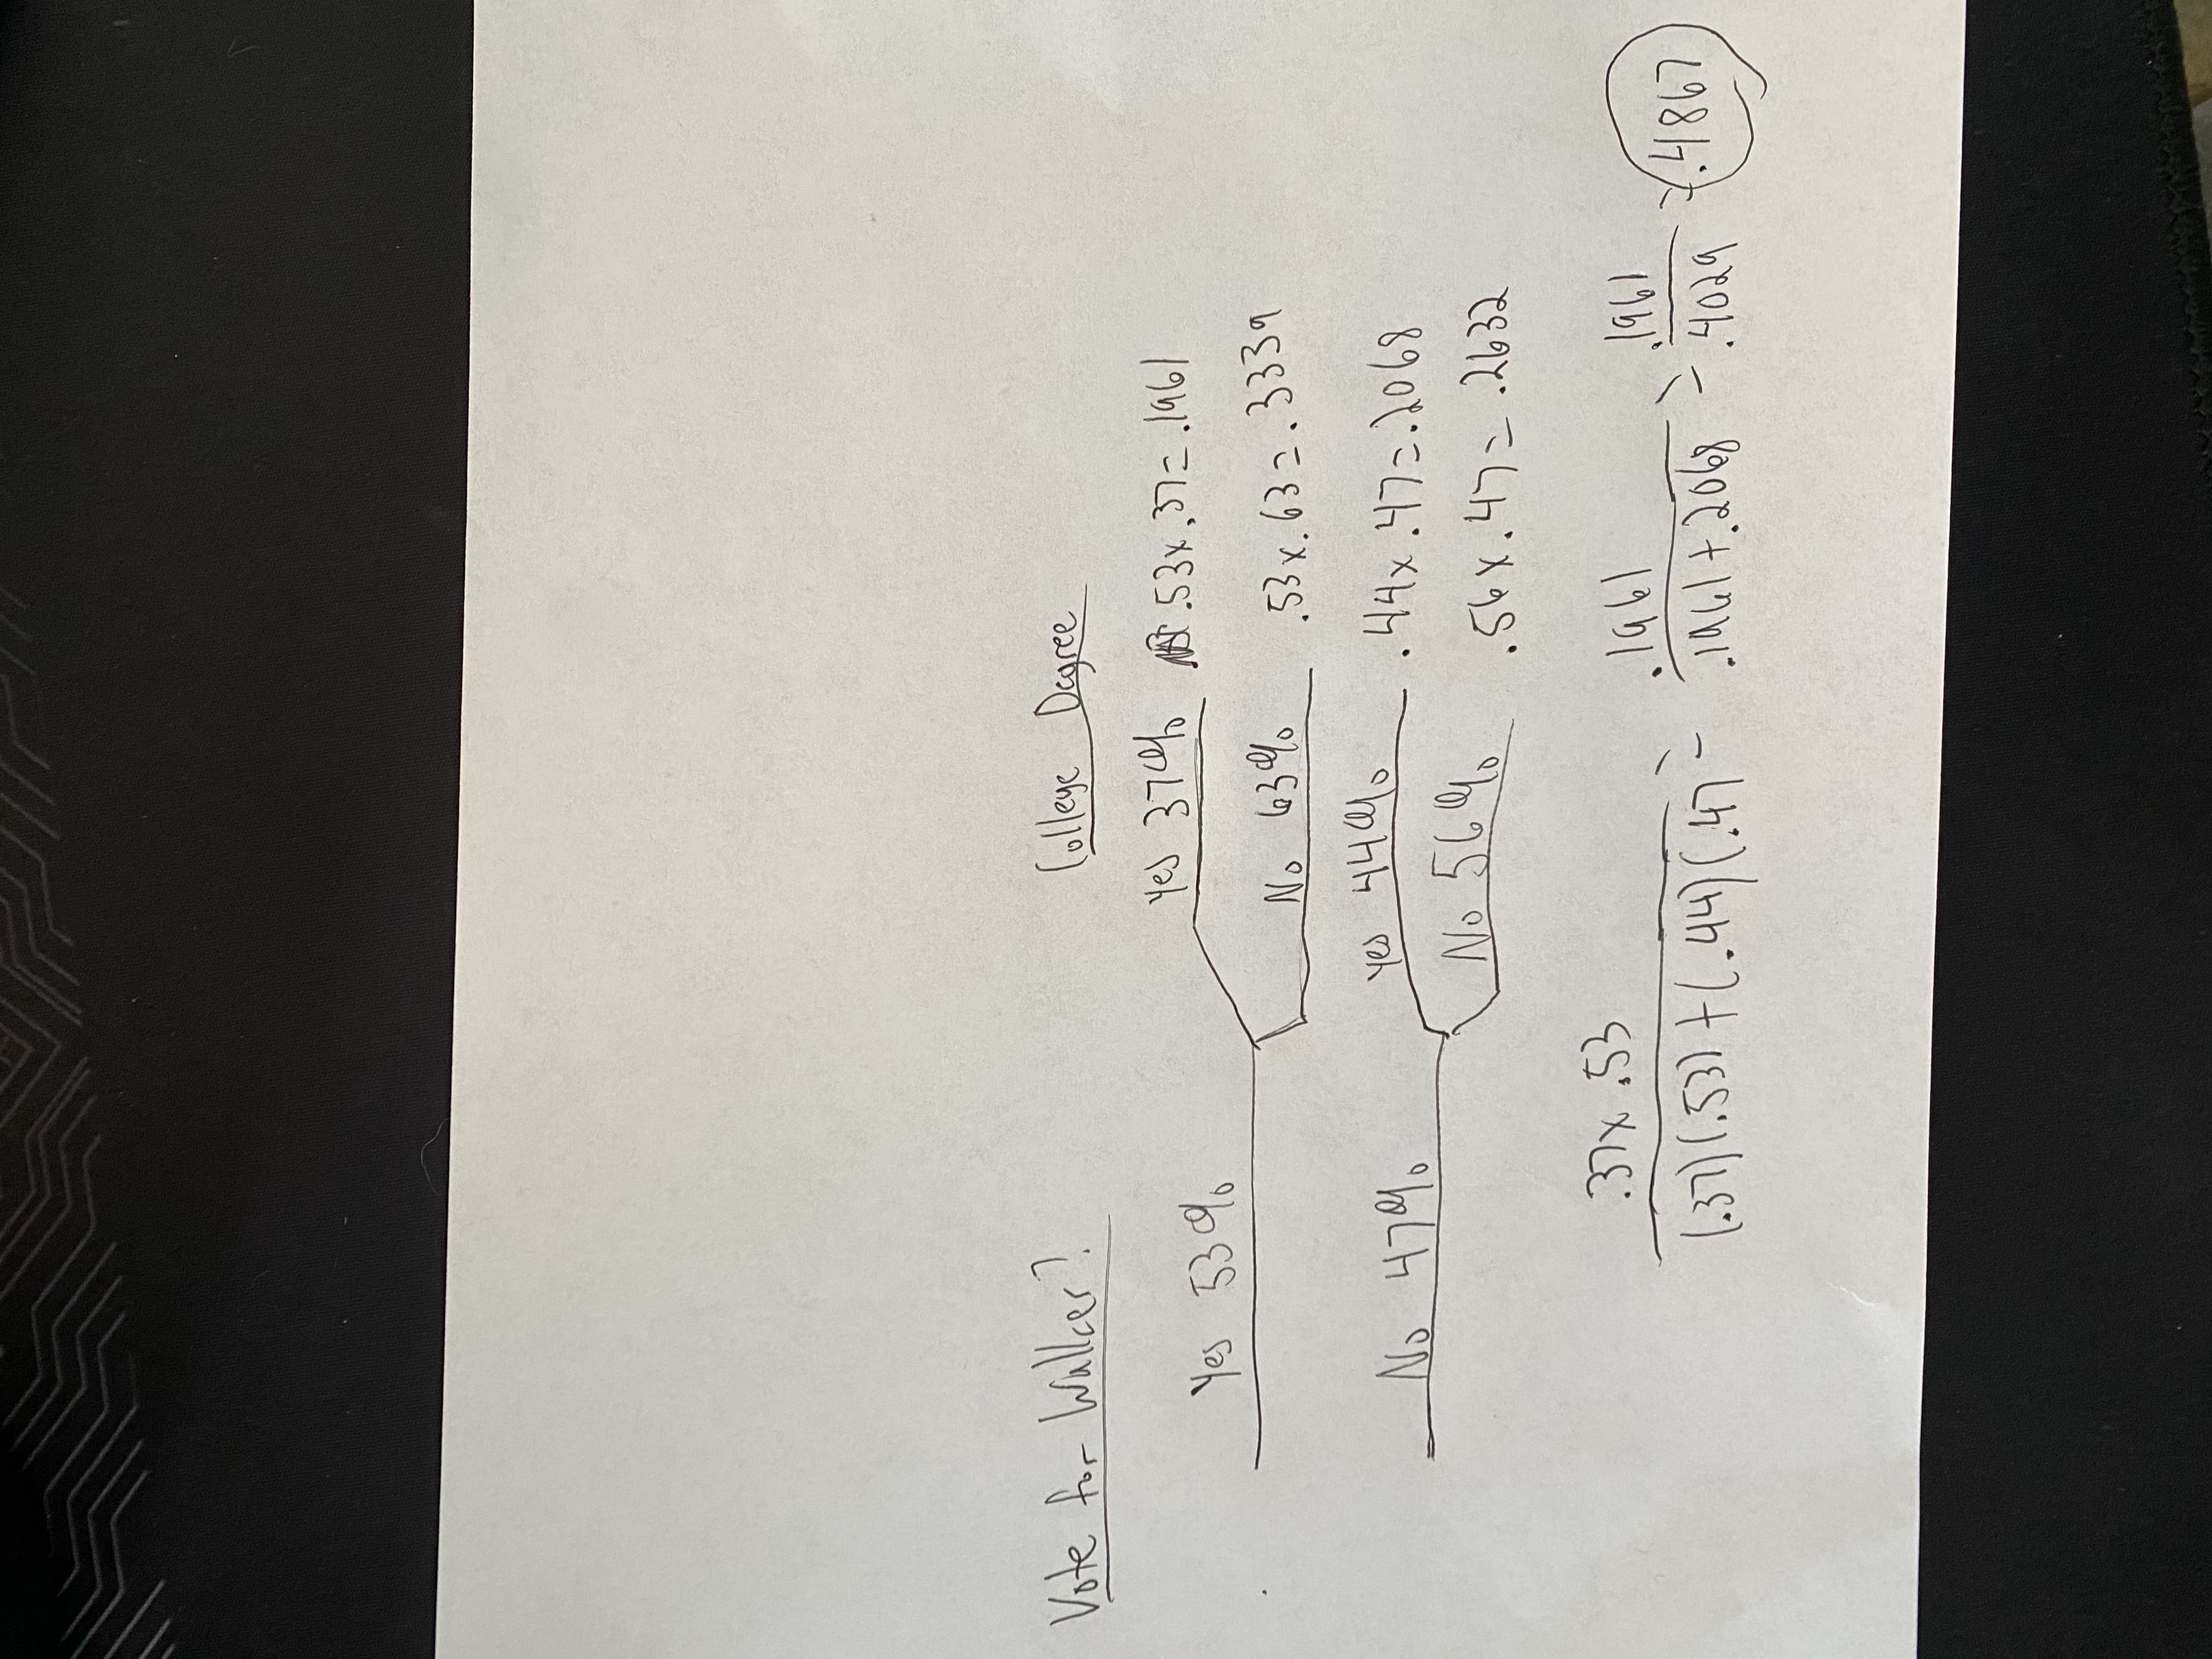 Vote for Walker?
College Degree
Yes 53%
Yes 37% .53x.37=.1961
No 63% .53x.63=.3339
No 47%
Yes 44% .44x.47=.2068
No 56% .56x.47=.2632
.37x.53
(.37)(.53)+(.44)(.47 = .1961 / .1961+.2068 = .1961 / .4029 = .4867